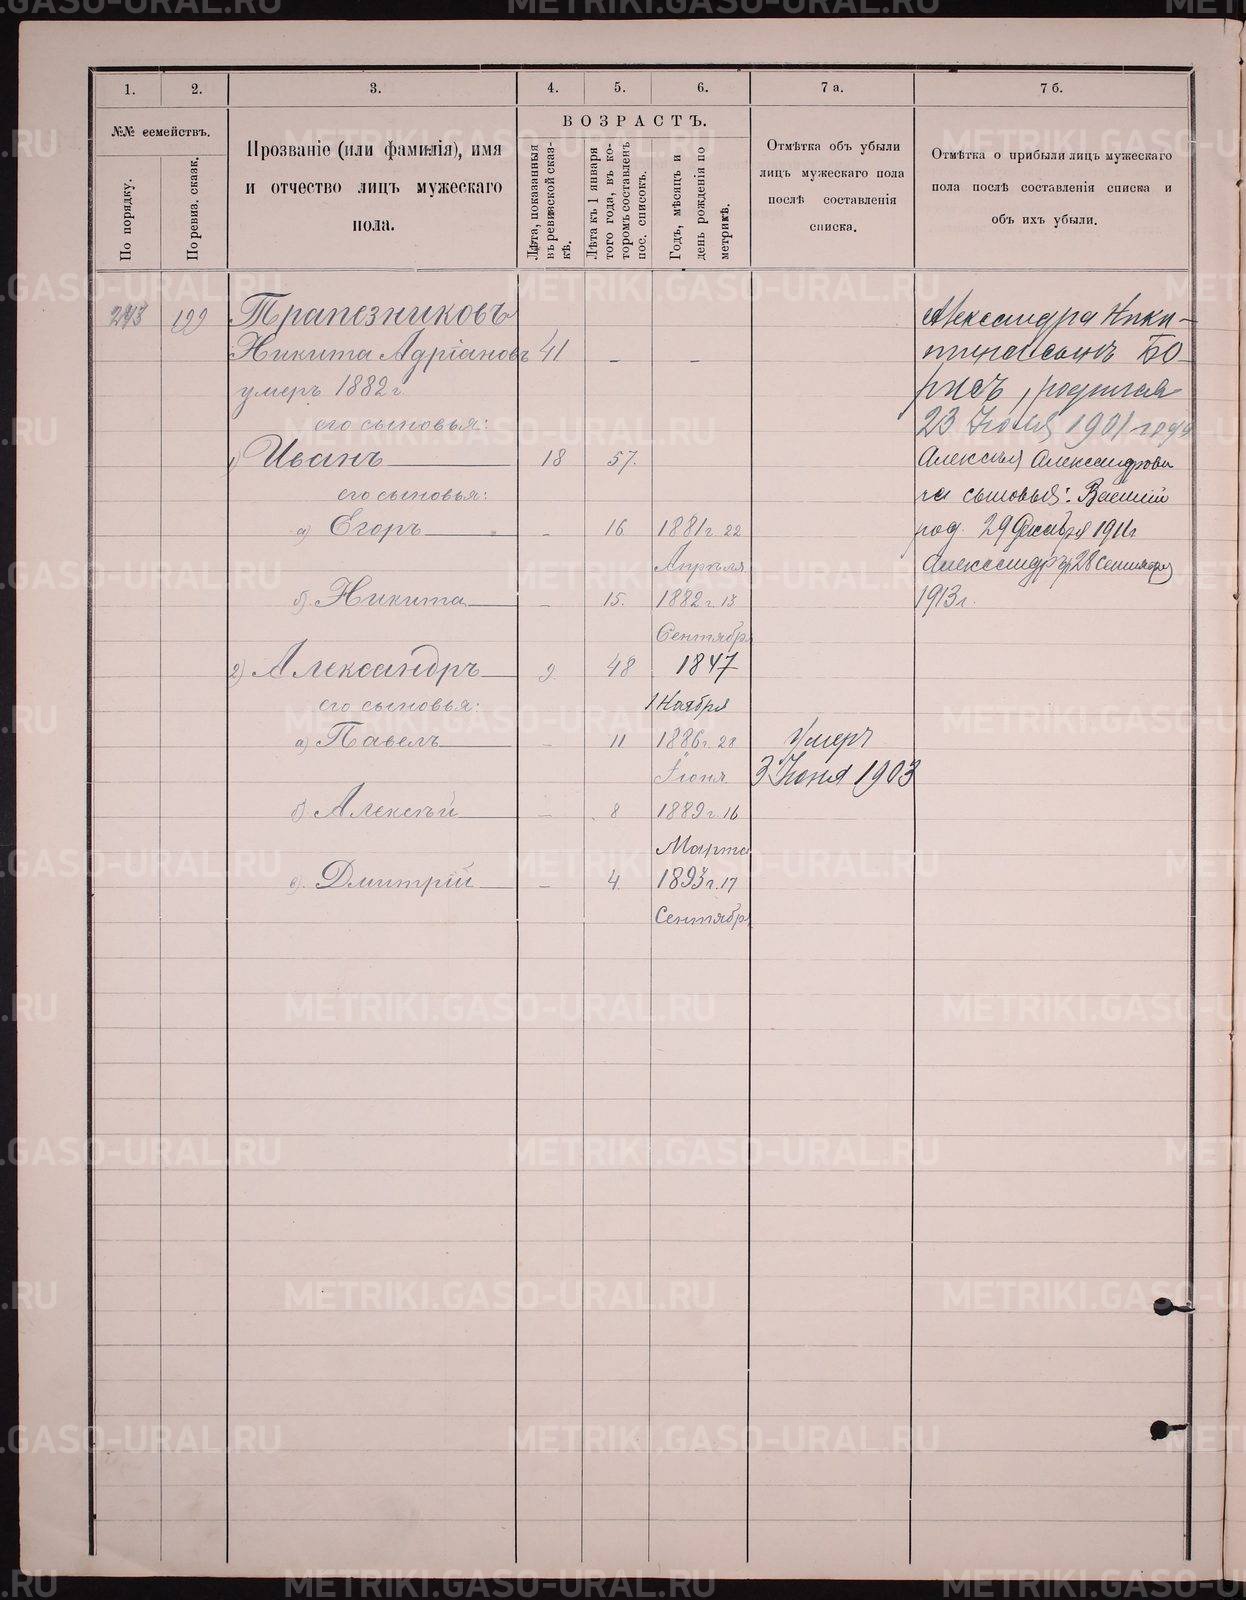 1.
2.
3.
4.
5.
6.
7 а.
7 б.
№№ семействъ.
По порядку.
По ревиз. сказк.
Прозваніе (или фамилія), имя
и отчество лицъ мужескаго
пола.
ВОЗРАСТЪ.
Лѣта, показанныя
въ ревизской сказ-
кѣ.
Лѣта къ 1 января
того года, въ ко-
торомъ составленъ
пос. списокъ.
Годъ, мѣсяцъ и
день рожденія по
метрикѣ.
Отмѣтка объ убыли
лицъ мужескаго пола
послѣ составленія
списка.
Отмѣтка о прибыли лицъ мужескаго
пола послѣ составленія списка и
объ ихъ убыли.
243 199 Трапезниковъ
Никита Адріановъ 41 - -
умеръ 1882 г.
его сыновья:
1) Иванъ 18 57.
его сыновья:
а) Егоръ - 16 1881 г. 22
Апрѣля
б) Никита - 15. 1882 г. 13
Сентября
2) Александръ 9 48 1847
его сыновья: 1 Ноября
а) Павелъ - 11 1886 г. 28
Іюня
б) Алексѣй - 8 1889 г. 16
Марта
с) Дмитрій - 4 1893 г. 17
Сентября
Умеръ
3 Іюня 1903
Александра Ники-
тина сынъ Бо-
рисъ, родился
23 Іюля 1901 года
Алексѣя Александрови
ча сыновья: Василій
род. 29 Декабря 1911 г
Александръ 28 Сентября
1913 г.
METRIKI.GASO-URAL.RU